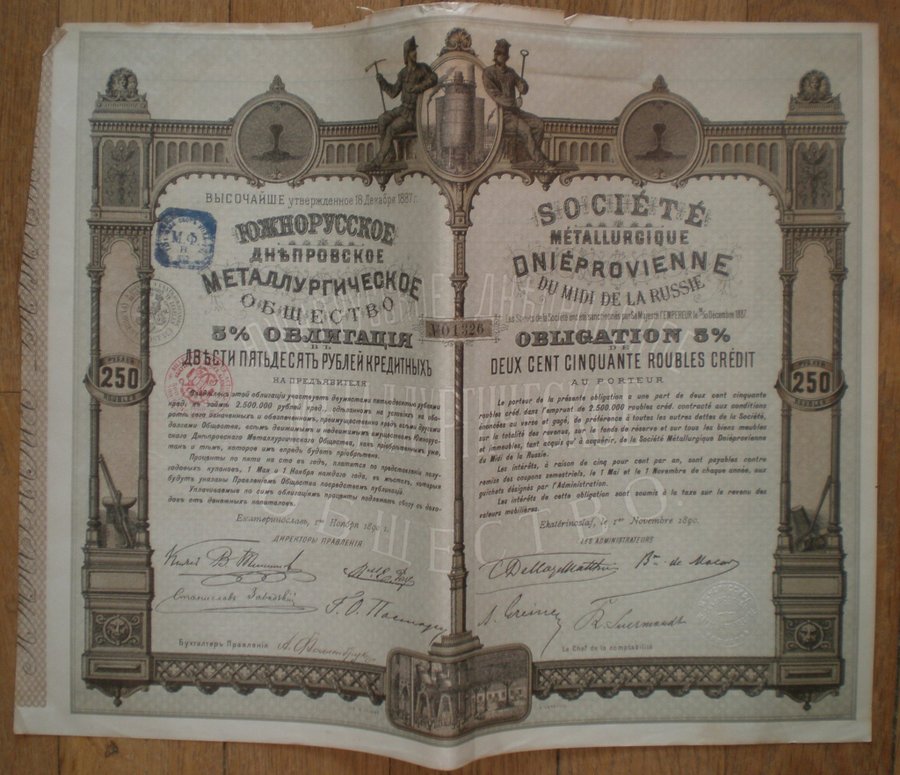 ВЫСОЧАЙШЕ утвержденное 18 Декабря 1887 г.
ЮЖНОРУССКОЕ
ДНѢПРОВСКОЕ
МЕТАЛЛУРГИЧЕСКОЕ
ОБЩЕСТВО
5% ОБЛИГАЦІЯ
ВЪ
ДВѢСТИ ПЯТЬДЕСЯТЪ РУБЛЕЙ КРЕДИТНЫХЪ
НА ПРЕДЪЯВИТЕЛЯ
этой облигаціи участвуетъ двумястами пятьюдесятью рублями
кред. въ займѣ 2.500.000 рублей кред., сдѣланномъ на условіяхъ на обо-
ротѣ сего означенныхъ и обезпеченномъ, преимущественно предъ всѣми другими
долгами Общества, всѣмъ движимымъ и недвижимымъ имуществомъ Южнорус-
скаго Днѣпровскаго Металлургическаго Общества, какъ пріобрѣтеннымъ уже,
такъ и тѣмъ, которое имъ впредь будетъ пріобрѣтено.
Проценты по пяти на сто въ годъ, платятся по представленіи полу-
годовыхъ купоновъ, 1 Мая и 1 Ноября каждаго года, въ мѣстахъ, которыя
будутъ указаны Правленіемъ Общества посредствомъ публикацій.
Уплачиваемые по симъ облигаціямъ проценты подлежатъ сбору съ дохо-
довъ отъ денежныхъ капиталовъ.
Екатеринославъ, 1го Ноября 1890 г.
ДИРЕКТОРЫ ПРАВЛЕНІЯ
Бухгалтеръ Правленія
№ 01326
SOCIÉTÉ
MÉTALLURGIQUE
DNIÉPROVIENNE
DU MIDI DE LA RUSSIE
Les Statuts de la Société ont été sanctionnés par Sa Majesté l'EMPEREUR le 18/30 Décembre 1887.
OBLIGATION 5%
DE
DEUX CENT CINQUANTE ROUBLES CRÉDIT
AU PORTEUR
Le porteur de la présente obligation a une part de deux cent cinquante
roubles créd. dans l'emprunt de 2.500.000 roubles créd. contracté aux conditions
énoncées au verso et gagé, de préférence à toutes les autres dettes de la Société,
sur la totalité des revenus, sur le fonds de réserve et sur tous les biens meubles
et immeubles, tant acquis qu'à acquérir, de la Société Métallurgique Dniéprovienne
du Midi de la Russie.
Les intérêts, à raison de cinq pour cent par an, sont payables contre
remise des coupons semestriels, le 1 Mai et le 1 Novembre de chaque année, aux
guichets désignés par l'Administration.
Les intérêts de cette obligation sont soumis à la taxe sur le revenu des
valeurs mobilières.
Ekatérinoslaf, le 1er Novembre 1890.
LES ADMINISTRATEURS
Le Chef de la comptabilité
250
РУБЛЕЙ
250
ROUBLES
М.Ф.